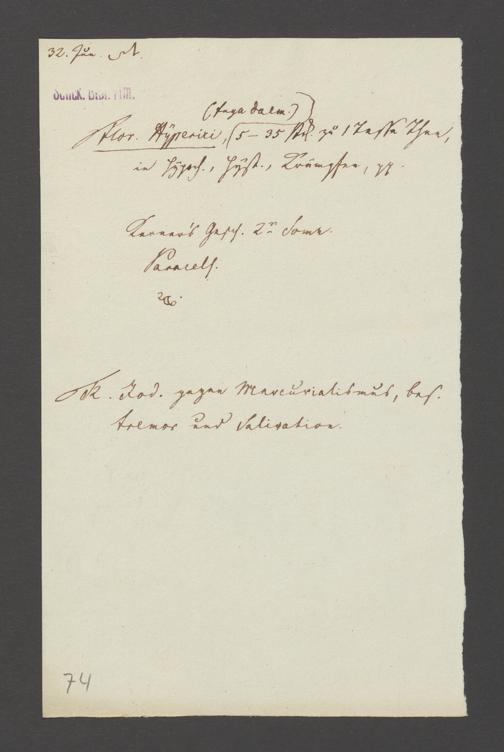 32. Jun.
Senck. Bibl. Ffm.
(fuga daem.)
Flor. Hÿperici, (5 – 35 Stk. zu 1 Tasse Thee,
in Hypoch., Hyst., Krämpfen, pp.
Kerner's Gesch. 2r Somn.
Paracels.
K. Jod. gegen Mercurialismus, bes.
tremor und Salivation.
74